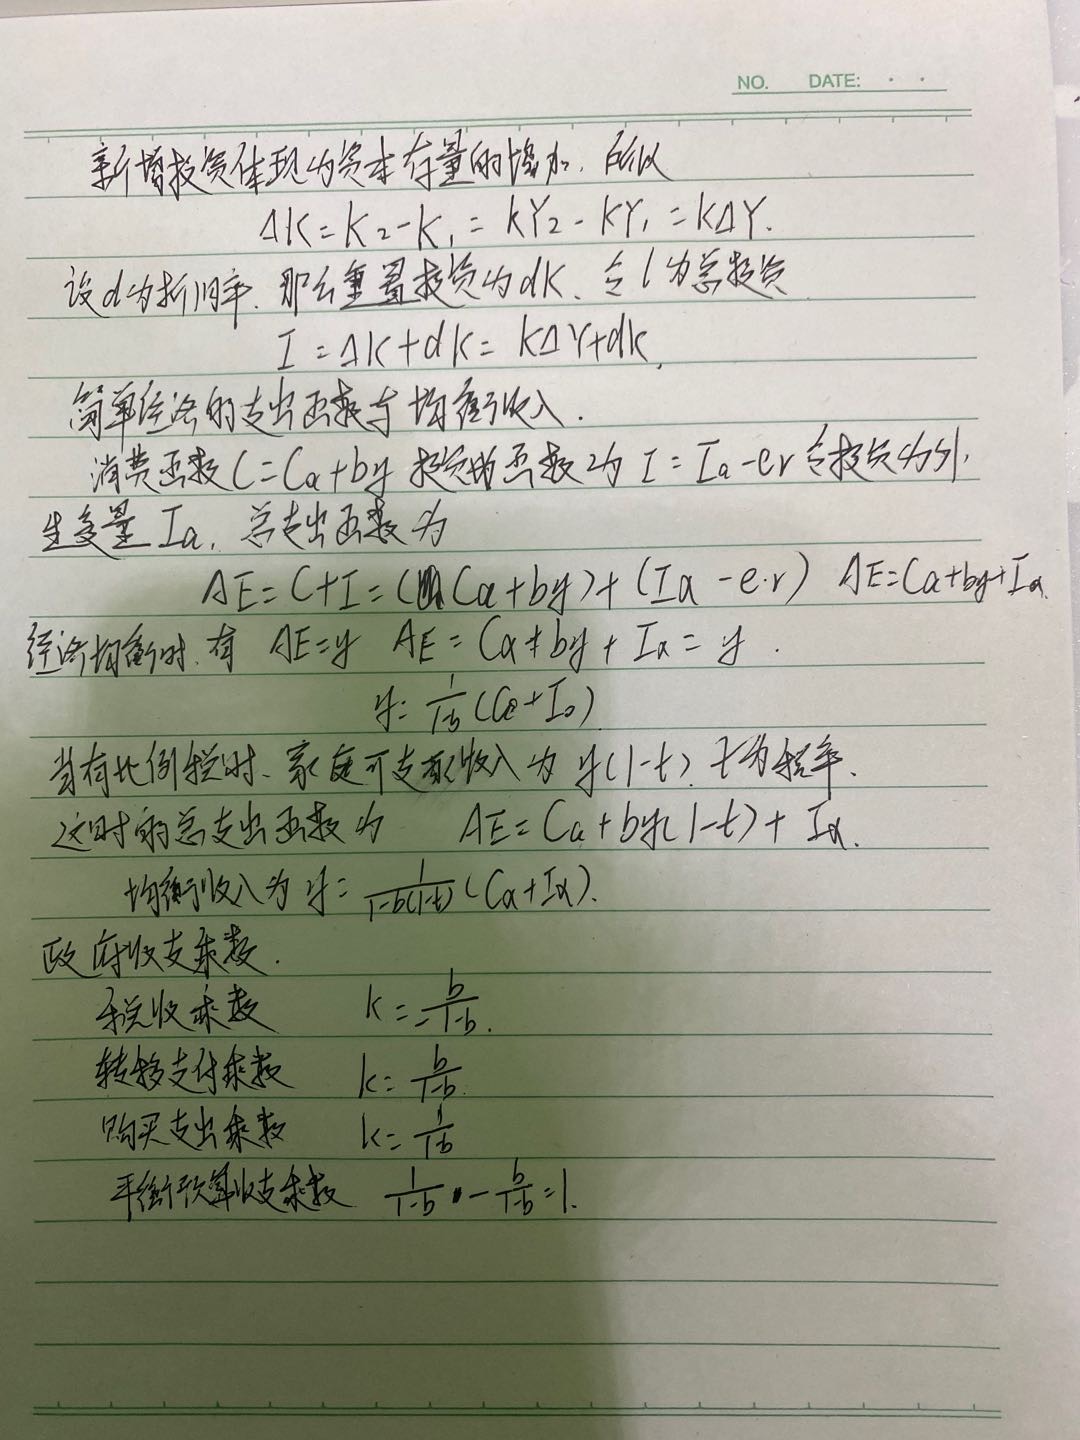 NO. DATE: · ·
新增投资体现为资本存量的增加, 所以
ΔK=K₂-K₁=kY₂-kY₁=kΔY.
设d为折旧率, 那么重置投资为dK、令I为总投资
I=ΔK+dK=kΔY+dk,
简单经济的支出函数与均衡收入.
消费函数C=Ca+by 投资的函数为I=Ia-er 令投资为外
生变量Ia, 总支出函数为
AE=C+I=(Ca+by)+(Ia-e·r) AE=Ca+by+Ia.
经济均衡时, 有 AE=y AE=Ca+by+Ia=y.
y=1/(1-b)(Ca+Ia)
当有比例税时、家庭可支配收入为y(1-t), t为税率.
这时的总支出函数为 AE=Ca+by(1-t)+Ia.
均衡收入为y=1/(1-b(1-t))(Ca+Ia).
政府收支乘数.
税收乘数 k=-b/(1-b).
转移支付乘数 k=b/(1-b).
购买支出乘数 k=1/(1-b)
平衡预算收支乘数 1/(1-b)-b/(1-b)=1.